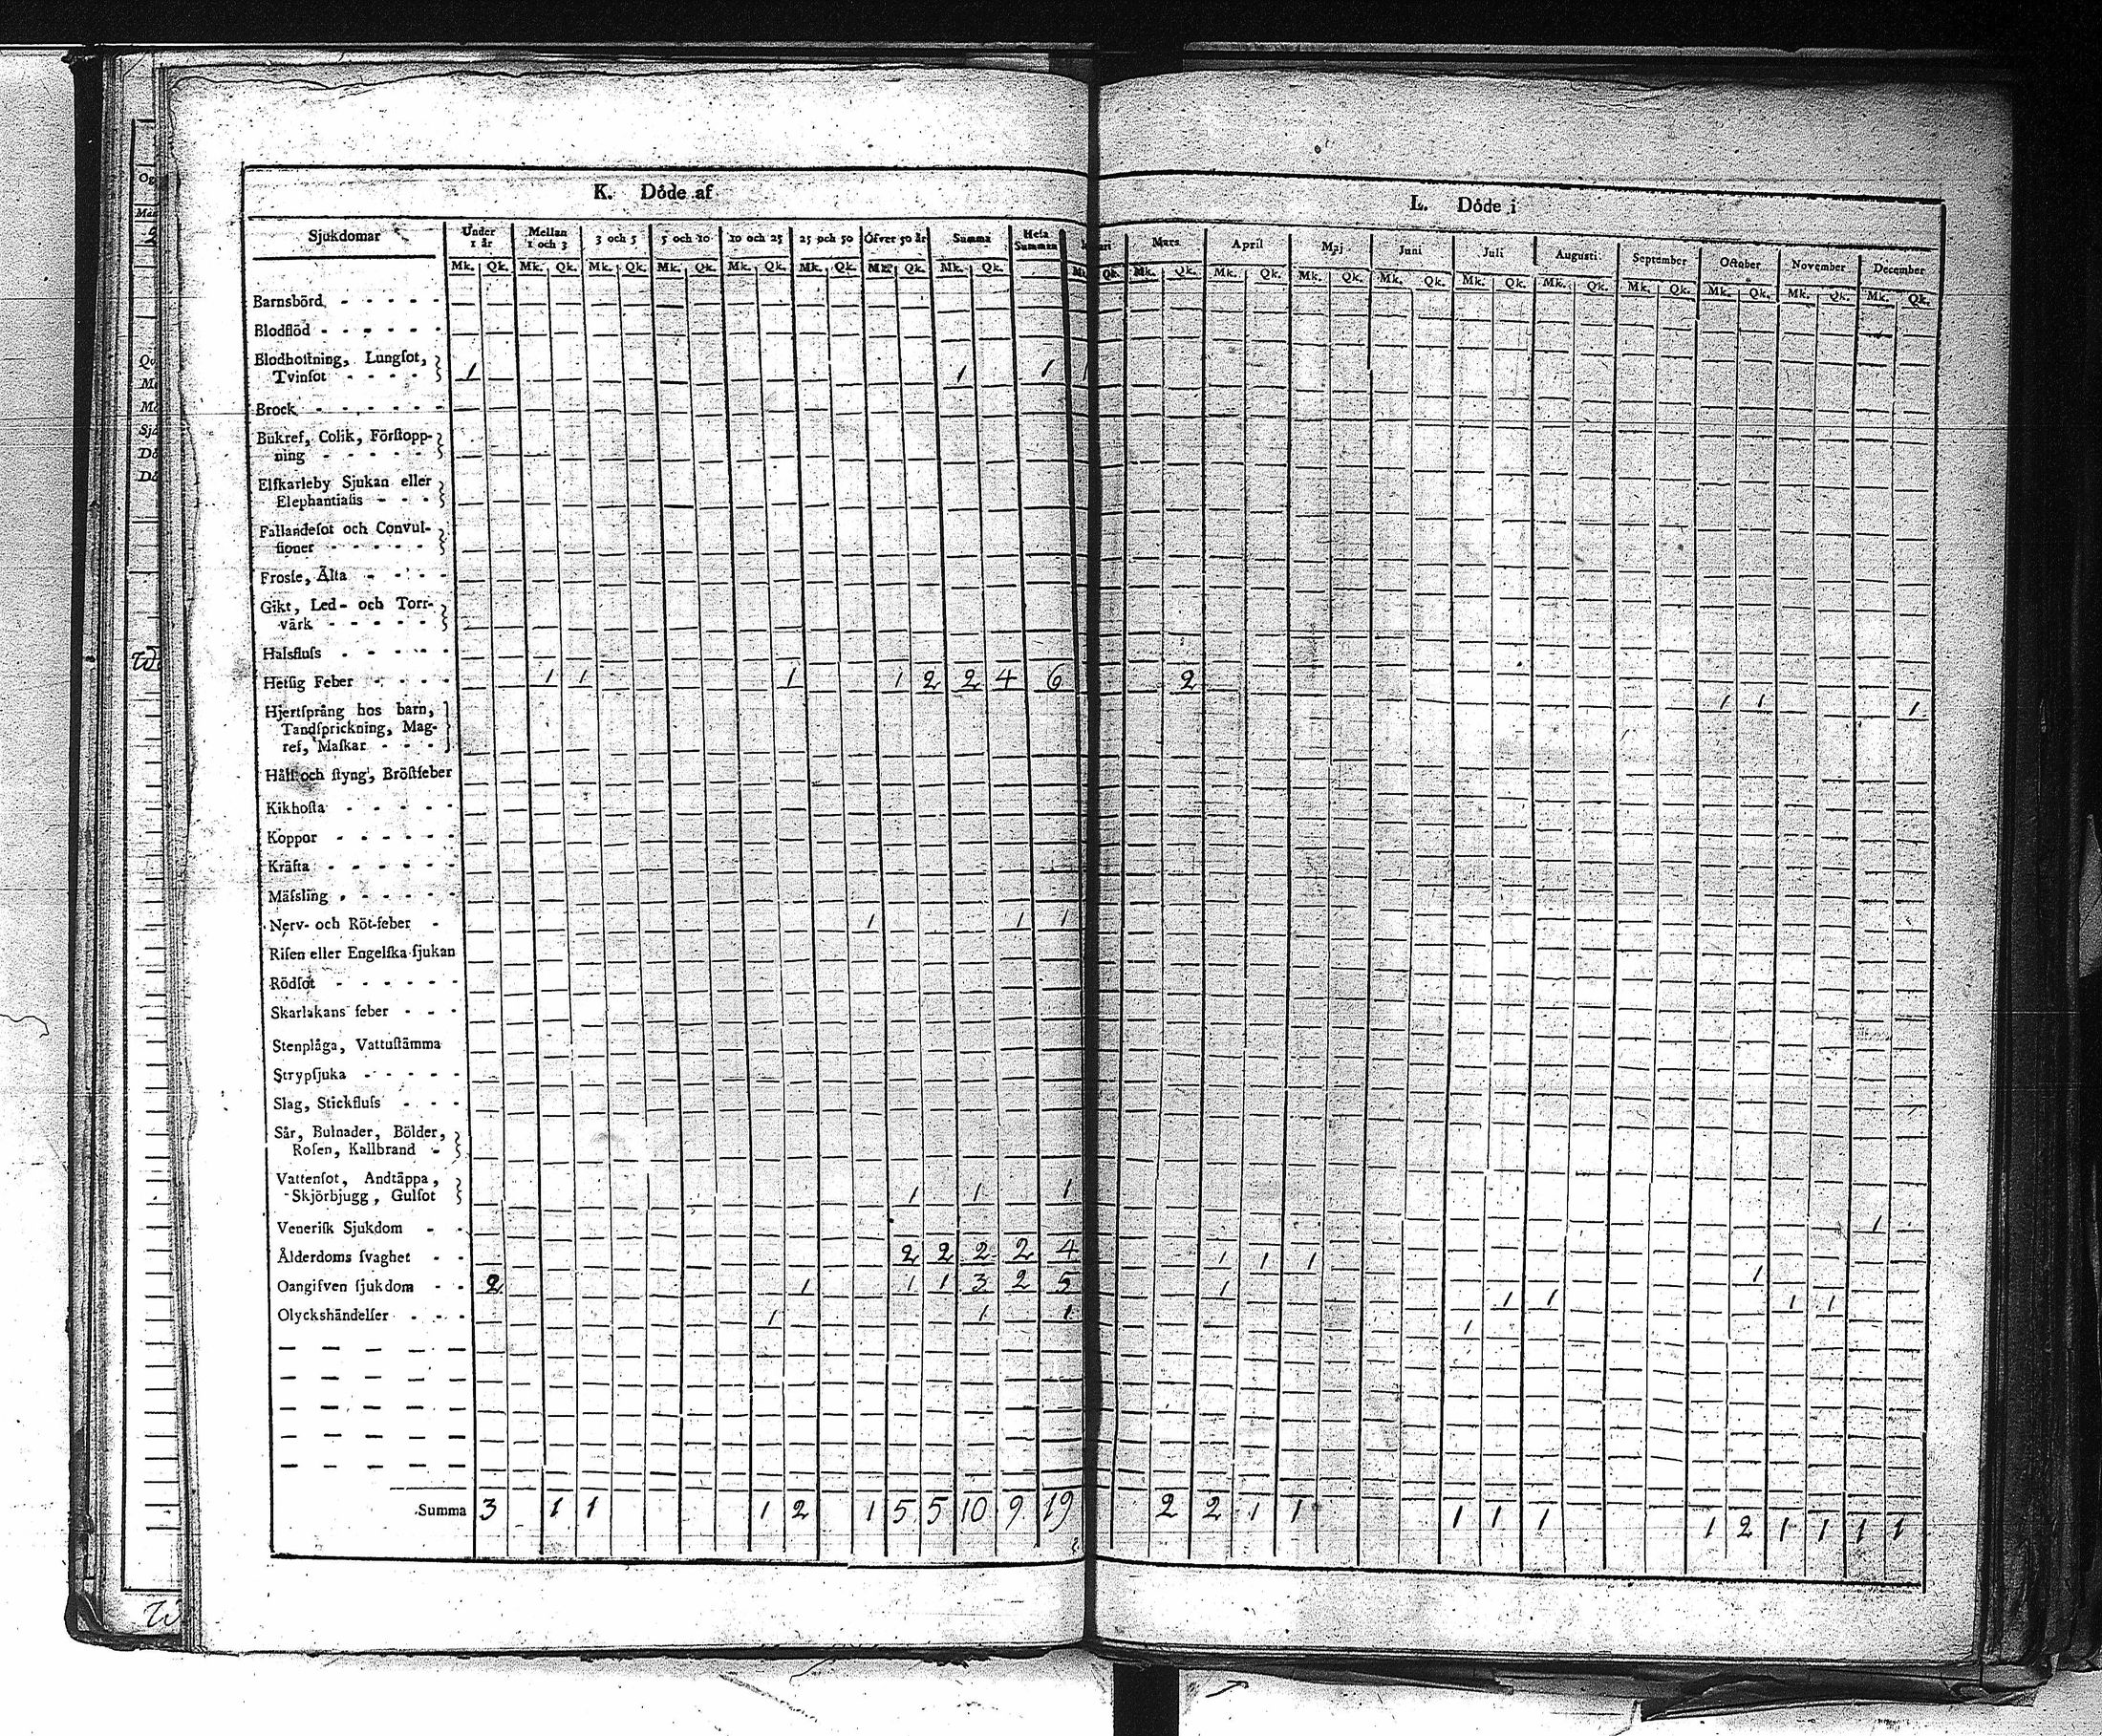 K. Döde af
L. Döde i
Sjukdomar
Under 1 år
Mellan 1 och 3
3 och 5
5 och 10
10 och 25
25 och 50
Öfver 50 år
Summa
Hela Summan
Mars
April
Maj
Juni
Juli
Augusti
September
October
November
December
Mk. Qk. Mk. Qk. Mk. Qk. Mk. Qk. Mk. Qk. Mk. Qk. Mk. Qk. Mk. Qk.
Qk. Mk. Qk. Mk. Qk. Mk. Qk. Mk. Qk. Mk. Qk. Mk. Qk. Mk. Qk. Mk. Qk. Mk. Qk. Mk. Qk.
Barnsbörd
Blodflöd
Blodhoſtning, Lungſot,
Tvinſot 1 1 1
Brock
Bukref, Colik, Förſtopp-
ning
Elfkarleby Sjukan eller
Elephantiaſis
Fallandeſot och Convul-
ſioner
Frosſe, Älta
Gikt, Led- och Torr-
värk
Halsfluſs
Hetſig Feber 1 1 1 1 2 2 4 6 2 1 1 1
Hjertſprång hos barn,
Tandſprickning, Mag-
ref, Maſkar
Håll och ſtyng, Bröſtfeber
Kikhoſta
Koppor
Kräfta
Mäſsling
Nerv- och Röt-feber 1 1 1
Riſen eller Engelſka ſjukan
Rödſot
Skarlakans feber
Stenplåga, Vattuſtämma
Strypſjuka
Slag, Stickfluſs
Sår, Bulnader, Bölder,
Roſen, Kallbrand
Vattenſot, Andtäppa,
Skjörbjugg, Gulſot 1 1 1 1
Veneriſk Sjukdom
Ålderdoms ſvaghet 2 2 2 2 4 1 1 1 1
Oangifven ſjukdom 2 1 1 1 3 2 5 1 1 1 1 1
Olyckshändelſer 1 1 1 1
Summa 3 1 1 1 2 1 5 5 10 9 19 2 2 1 1 1 1 1 1 2 1 1 1 1